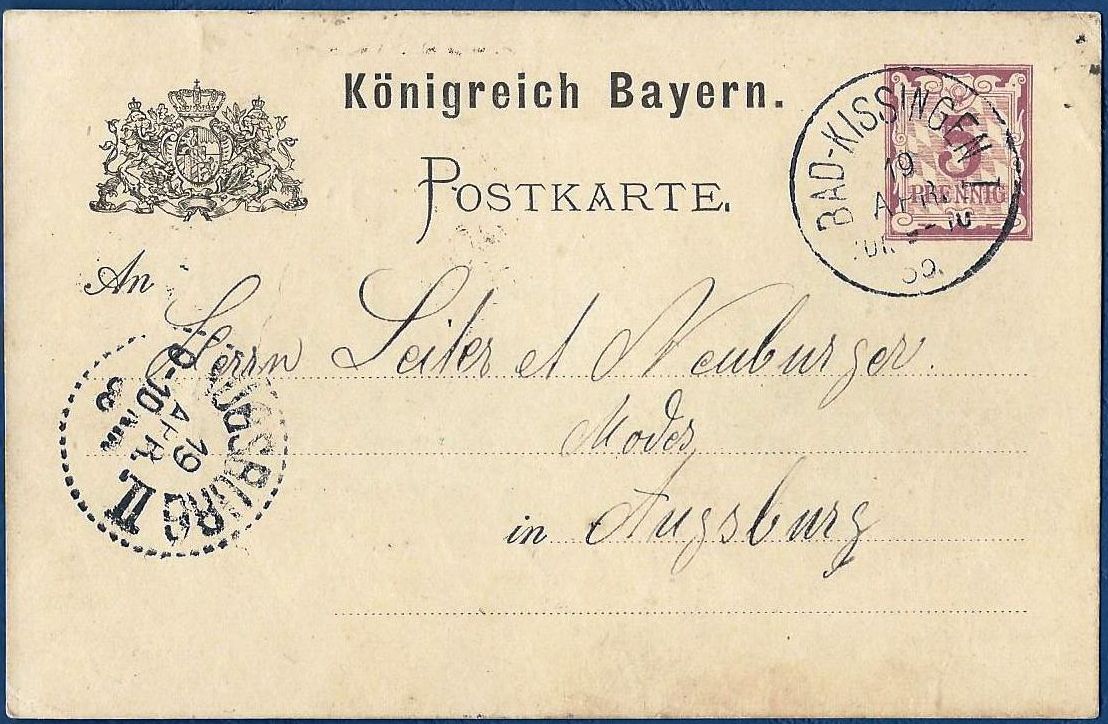 Königreich Bayern.
POSTKARTE.
5
PFENNIG
BAD-KISSINGEN
19
APR.
An
Herrn Seiler et Neuburger.
Modes
in Augsburg
AUGSBURG II.
19
APR.